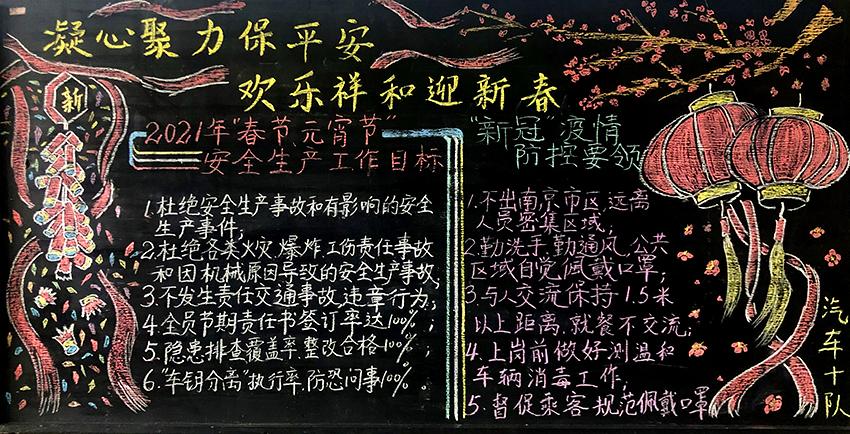 凝心聚力保平安
欢乐祥和迎新春
新
2021年"春节、元宵节"
安全生产工作目标
1.杜绝安全生产事故和有影响的安全
生产事件;
2.杜绝各类火灾、爆炸、工伤责任事故
和因机械原因导致的安全生产事故,
3.不发生责任交通事故、违章行为;
4.全员节期责任书签订率达100%;
5.隐患排查覆盖率、整改合格100%;
6."车钥分离"执行率、防恐问事100%。
"新冠"疫情
防控要领
1.不出南京市区,远离
人员密集区域;
2.勤洗手,勤通风,公共
区域自觉佩戴口罩;
3.与人交流保持1.5米
以上距离,就餐不交流;
4.上岗前做好测温和
车辆消毒工作;
5.督促乘客规范佩戴口罩
汽车十队